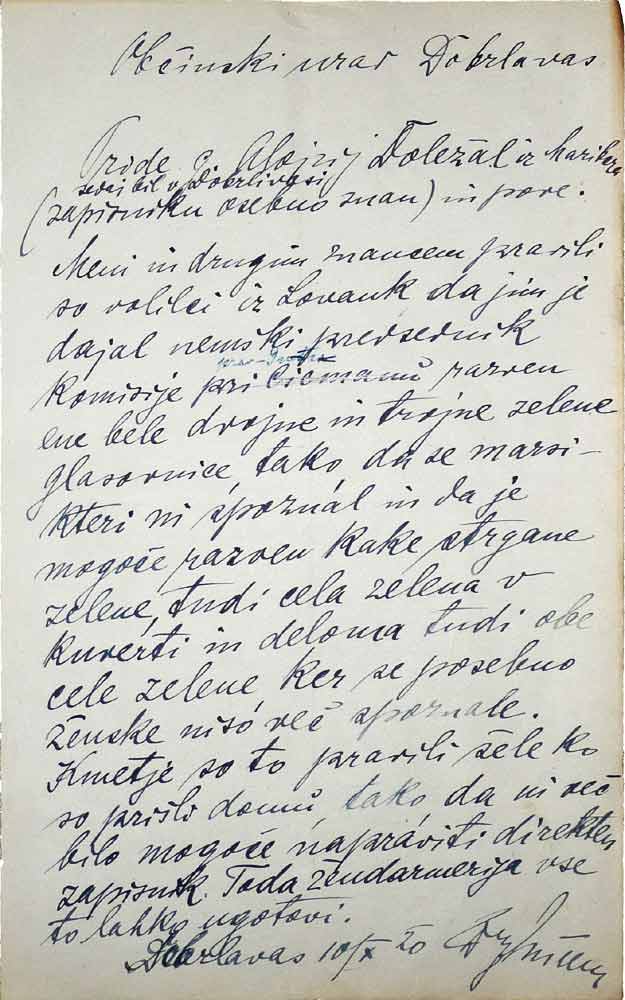 Občinski urad Dobrlavas
Pride g. Alojzij Doležal iz Maribora
sedaj bil v Dobrlivasi
(zapisniku osebno znan) in pove:
Meni in drugim znancem pravili
so volilci iz Lovank da jim je
dajal nemški predsednik
komisije pri Cicmanu razven
ene bele dvojne in trojne zelene
glasovnice, tako da se marsi-
kteri ni spoznal in da je
mogoče razven kake strgane
zelene, tudi cela zelena v
kuverti in deloma tudi obe
cele zelene ker se posebno
ženske niso več spoznale.
Kmetje so to pravili šele ko
so prišli domu, tako da ni več
bilo mogoče napraviti direkten
zapisnik. Toda žendarmerija vse
to lahko ugotovi.
Dobrlavas 10/X 20